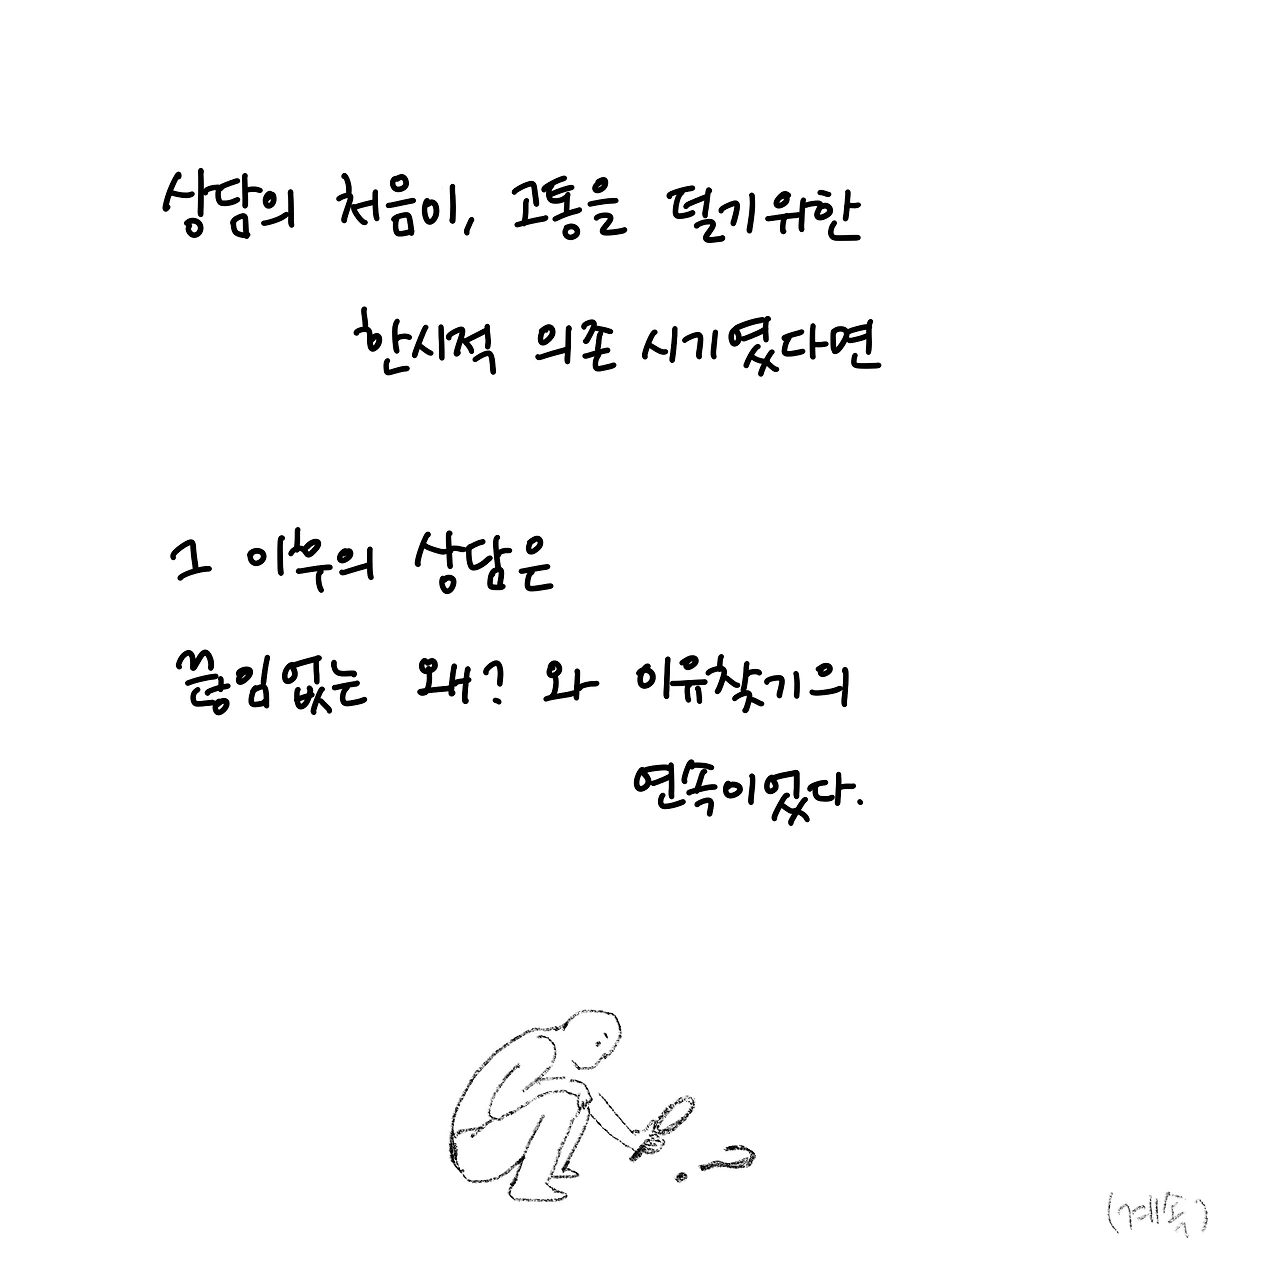 상담의 처음이, 고통을 덜기위한
한시적 의존 시기였다면
그 이후의 상담은
끊임없는 왜? 와 이유찾기의
연속이었다.
(계속)